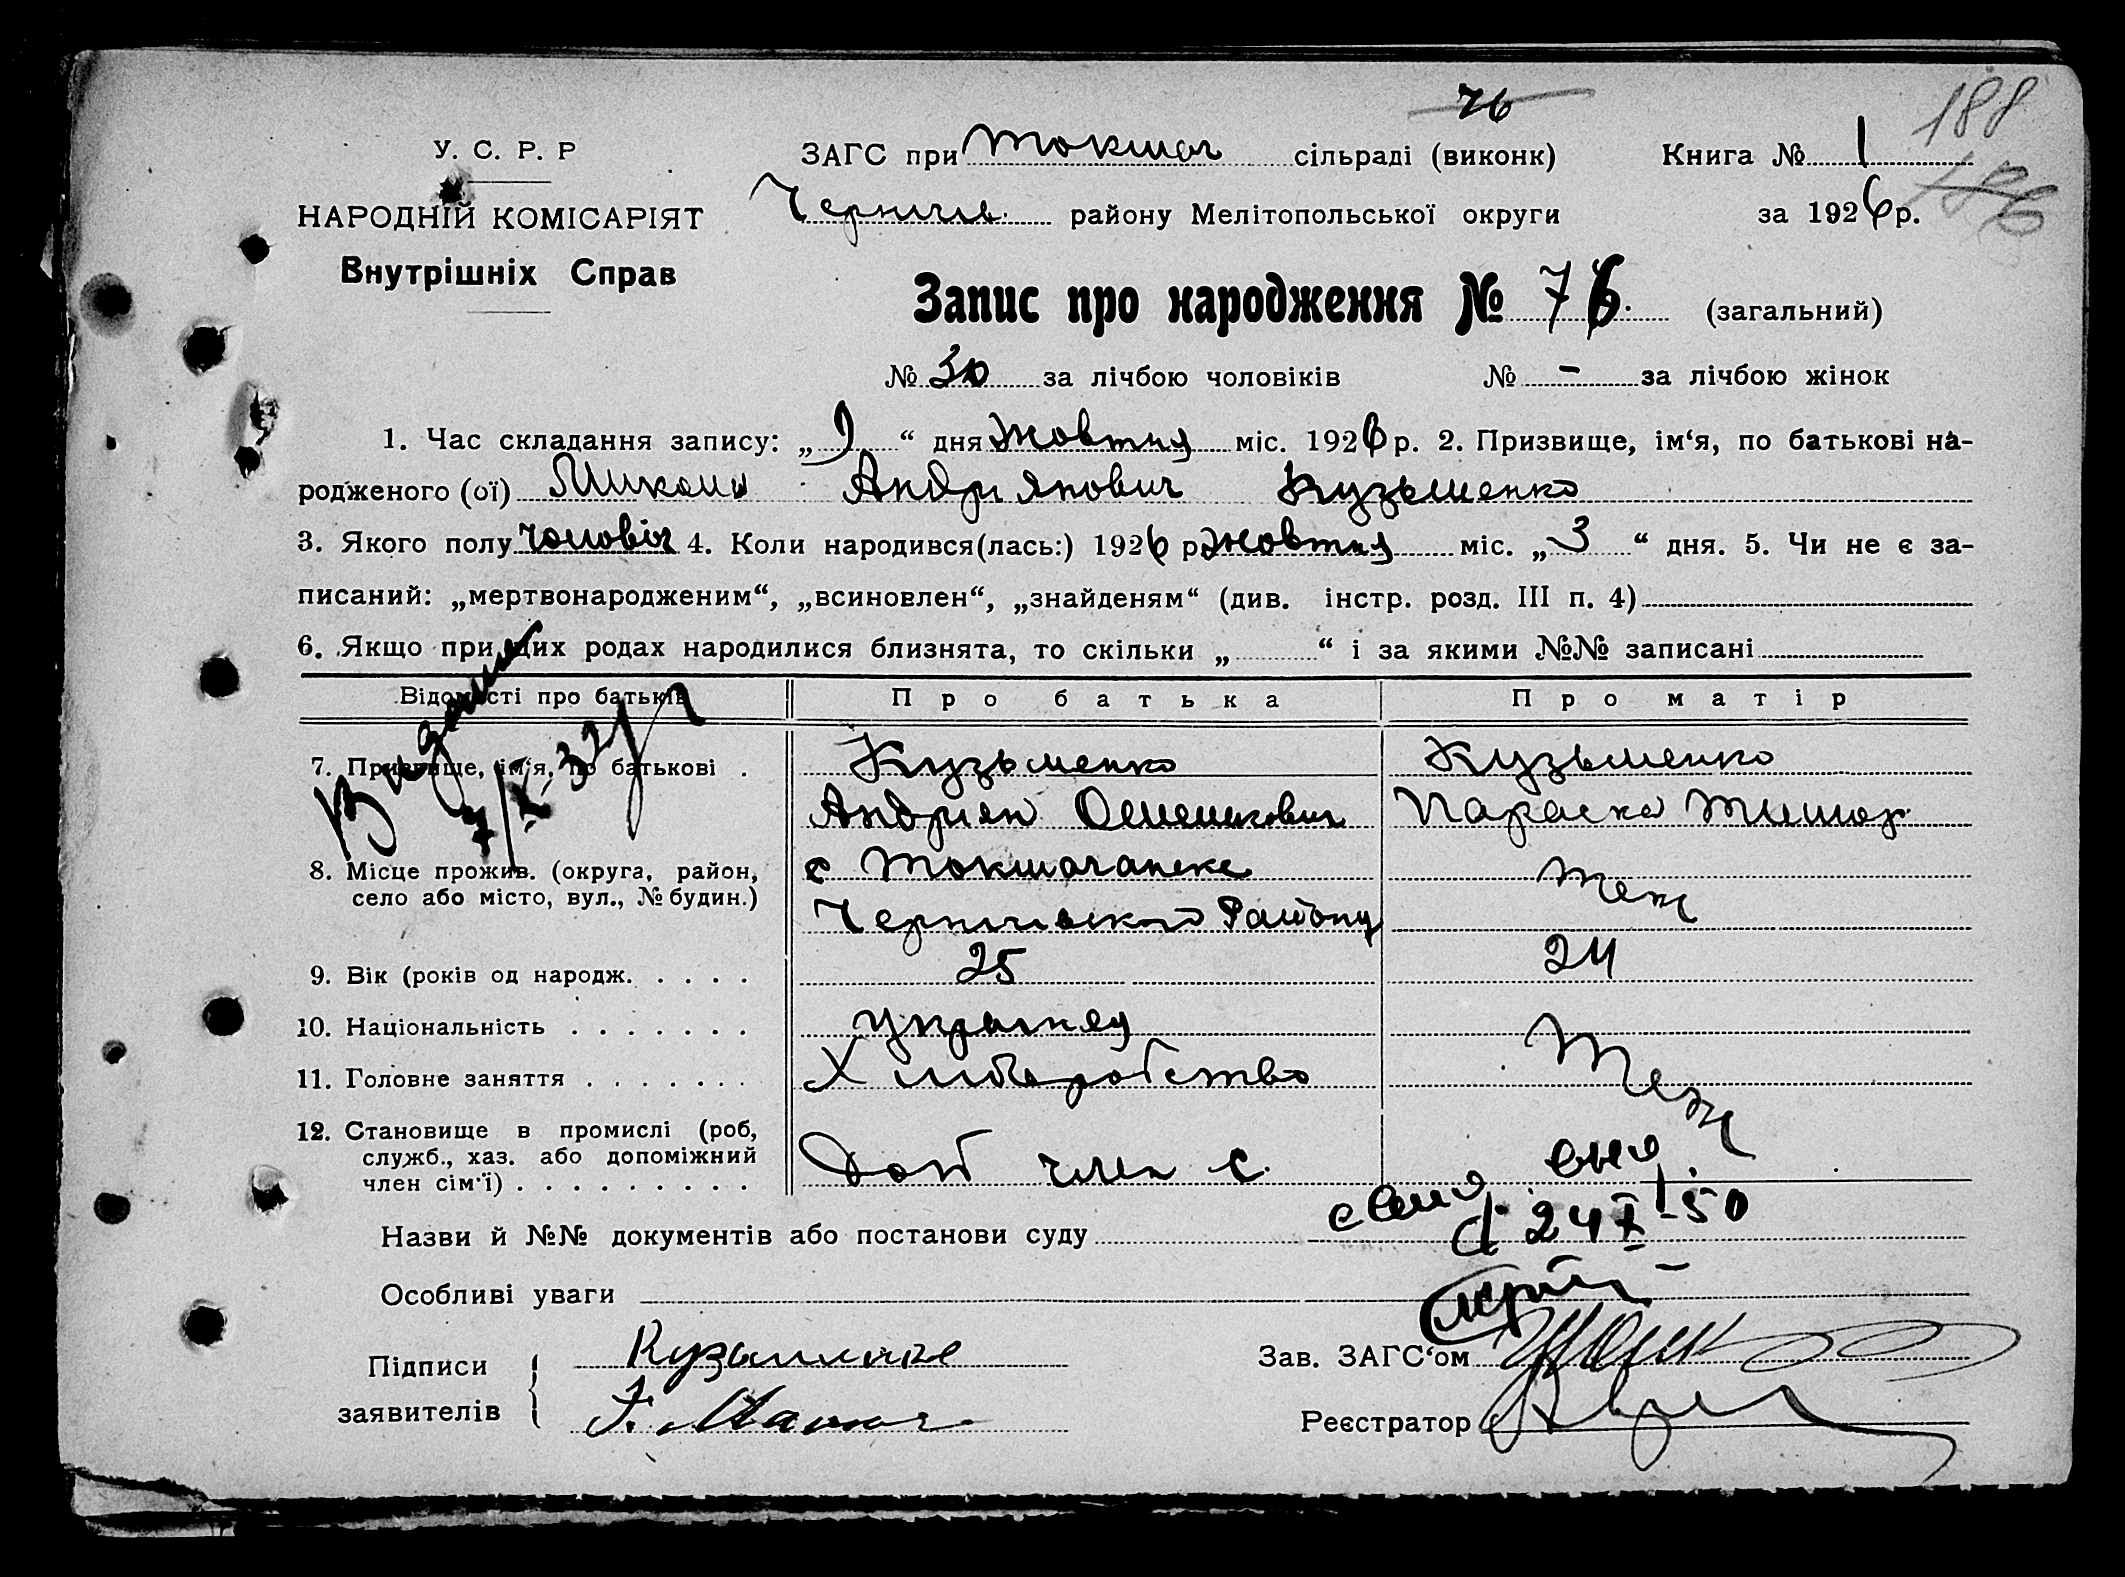 76
188
У. С. Р. Р
ЗАГС при Токмач сільраді (виконк) Книга № 1
176
НАРОДНІЙ КОМІСАРІЯТ
Чернигів. району Мелітопольської округи за 1926 р.
Внутрішніх Справ
Запис про народження № 76. (загальний)
№ 30 за лічбою чоловіків № - за лічбою жінок
1. Час складання запису: „ 9 “ дня Жовтня міс. 1926 р. 2. Призвище, ім‘я, по батькові на-
родженого (ої) Микола Андріянович Кузьменко
3. Якого полу чоловіч 4. Коли народився(лась:) 1926 р Жовтня міс. „ 3 “ дня. 5. Чи не є за-
писаний: „мертвонародженим“, „всиновлен“, „знайденям“ (див. інстр. розд. III п. 4)
6. Якщо при цих родах народилися близнята, то скільки „ “ і за якими №№ записані
Відомості про батьків Про батька Про матір
7. Призвище, ім‘я, по батькові . Кузьменко Кузьменко
Андриян Параска Тимоф.
8. Місце прожив. (округа, район, с Токмачанске Теж
село або місто, вул., № будин.) Чернигівского Району
9. Вік (років од народж. . . . . 25 24
10. Національність . . . . . . . українец Теж
11. Головне заняття . . . . . . . Хліборобство
12. Становище в промислі (роб,
служб., хаз. або допоміжний
член сім‘ї) . . . . . . . . . Доп член с.
24 X-50
Назви й №№ документів або постанови суду
Особливі уваги
Підписи Кузьменко Зав. ЗАГС‘ом
заявителів Реєстратор